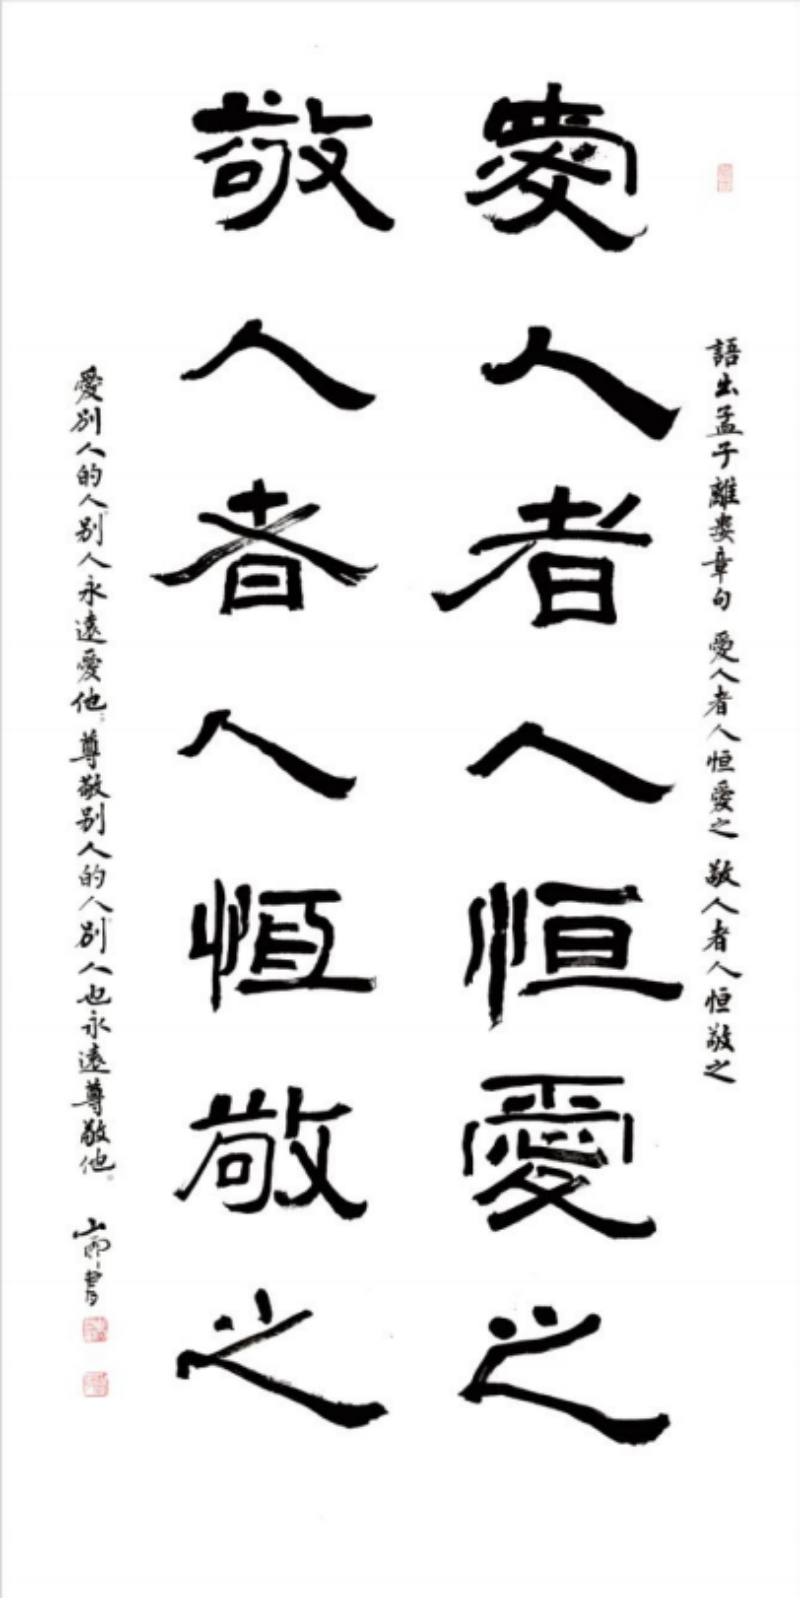 語出孟子離婁章句 愛人者人恒愛之 敬人者人恒敬之
愛人者人恒愛之
敬人者人恆敬之
愛别人的人别人永遠愛他；尊敬别人的人别人也永遠尊敬他。